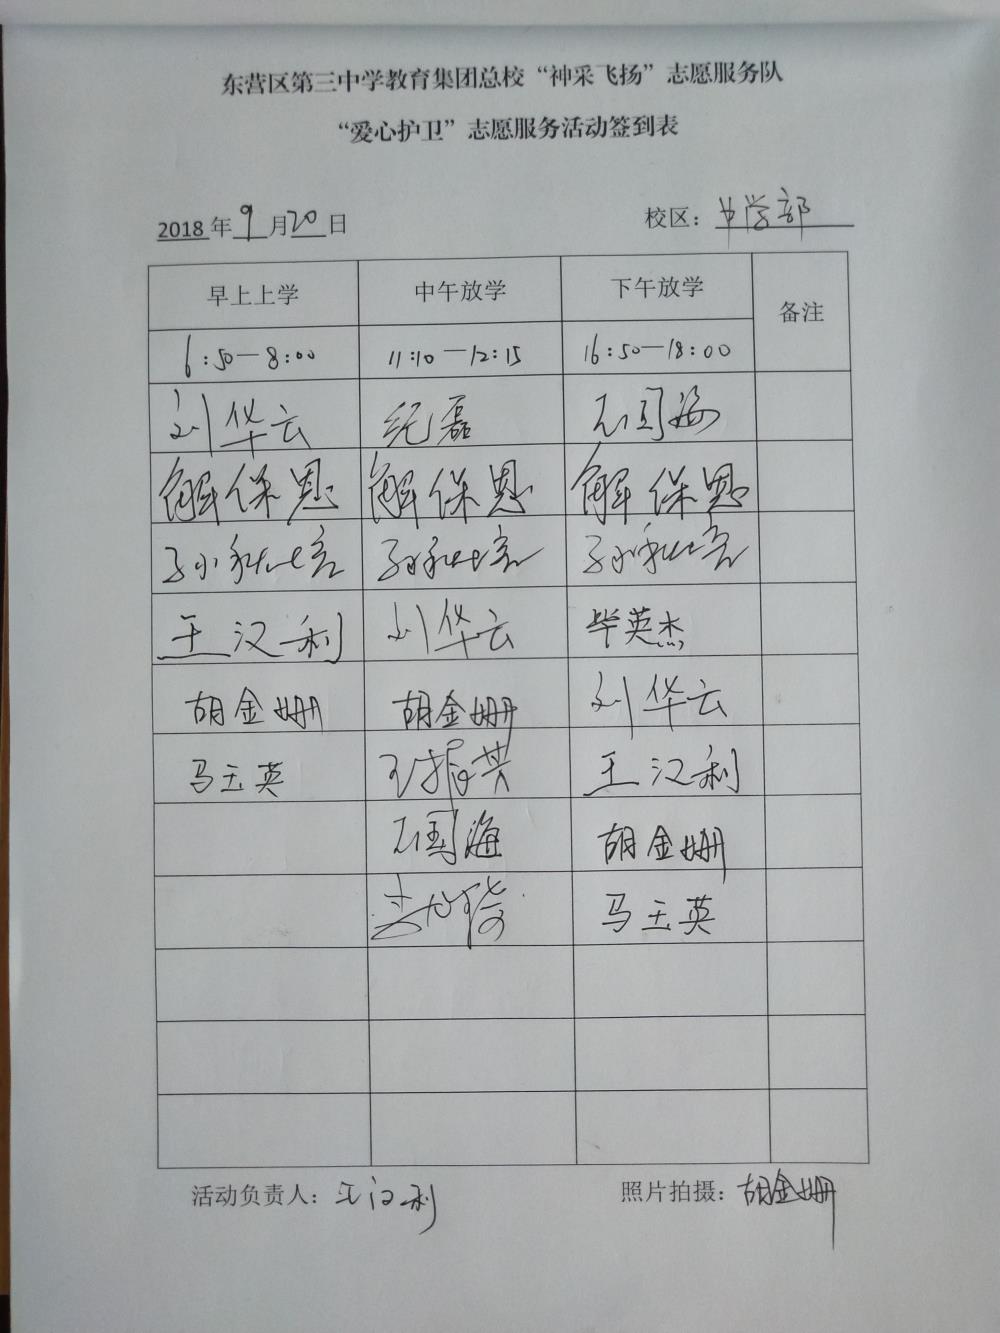 东营区第三中学教育集团总校“神采飞扬”志愿服务队
“爱心护卫”志愿服务活动签到表
2018年9月20日 校区：中学部
早上上学 中午放学 下午放学 备注
6:50—8:00 11:10—12:15 16:50—18:00
刘华云 纪磊 石国海
解保恩 解保恩 解保恩
王汉利 刘华云 毕英杰
胡金姗 胡金姗 刘华云
马玉英 王振英 王汉利
石国海 胡金姗
马玉英
活动负责人：王汉利 照片拍摄：胡金姗